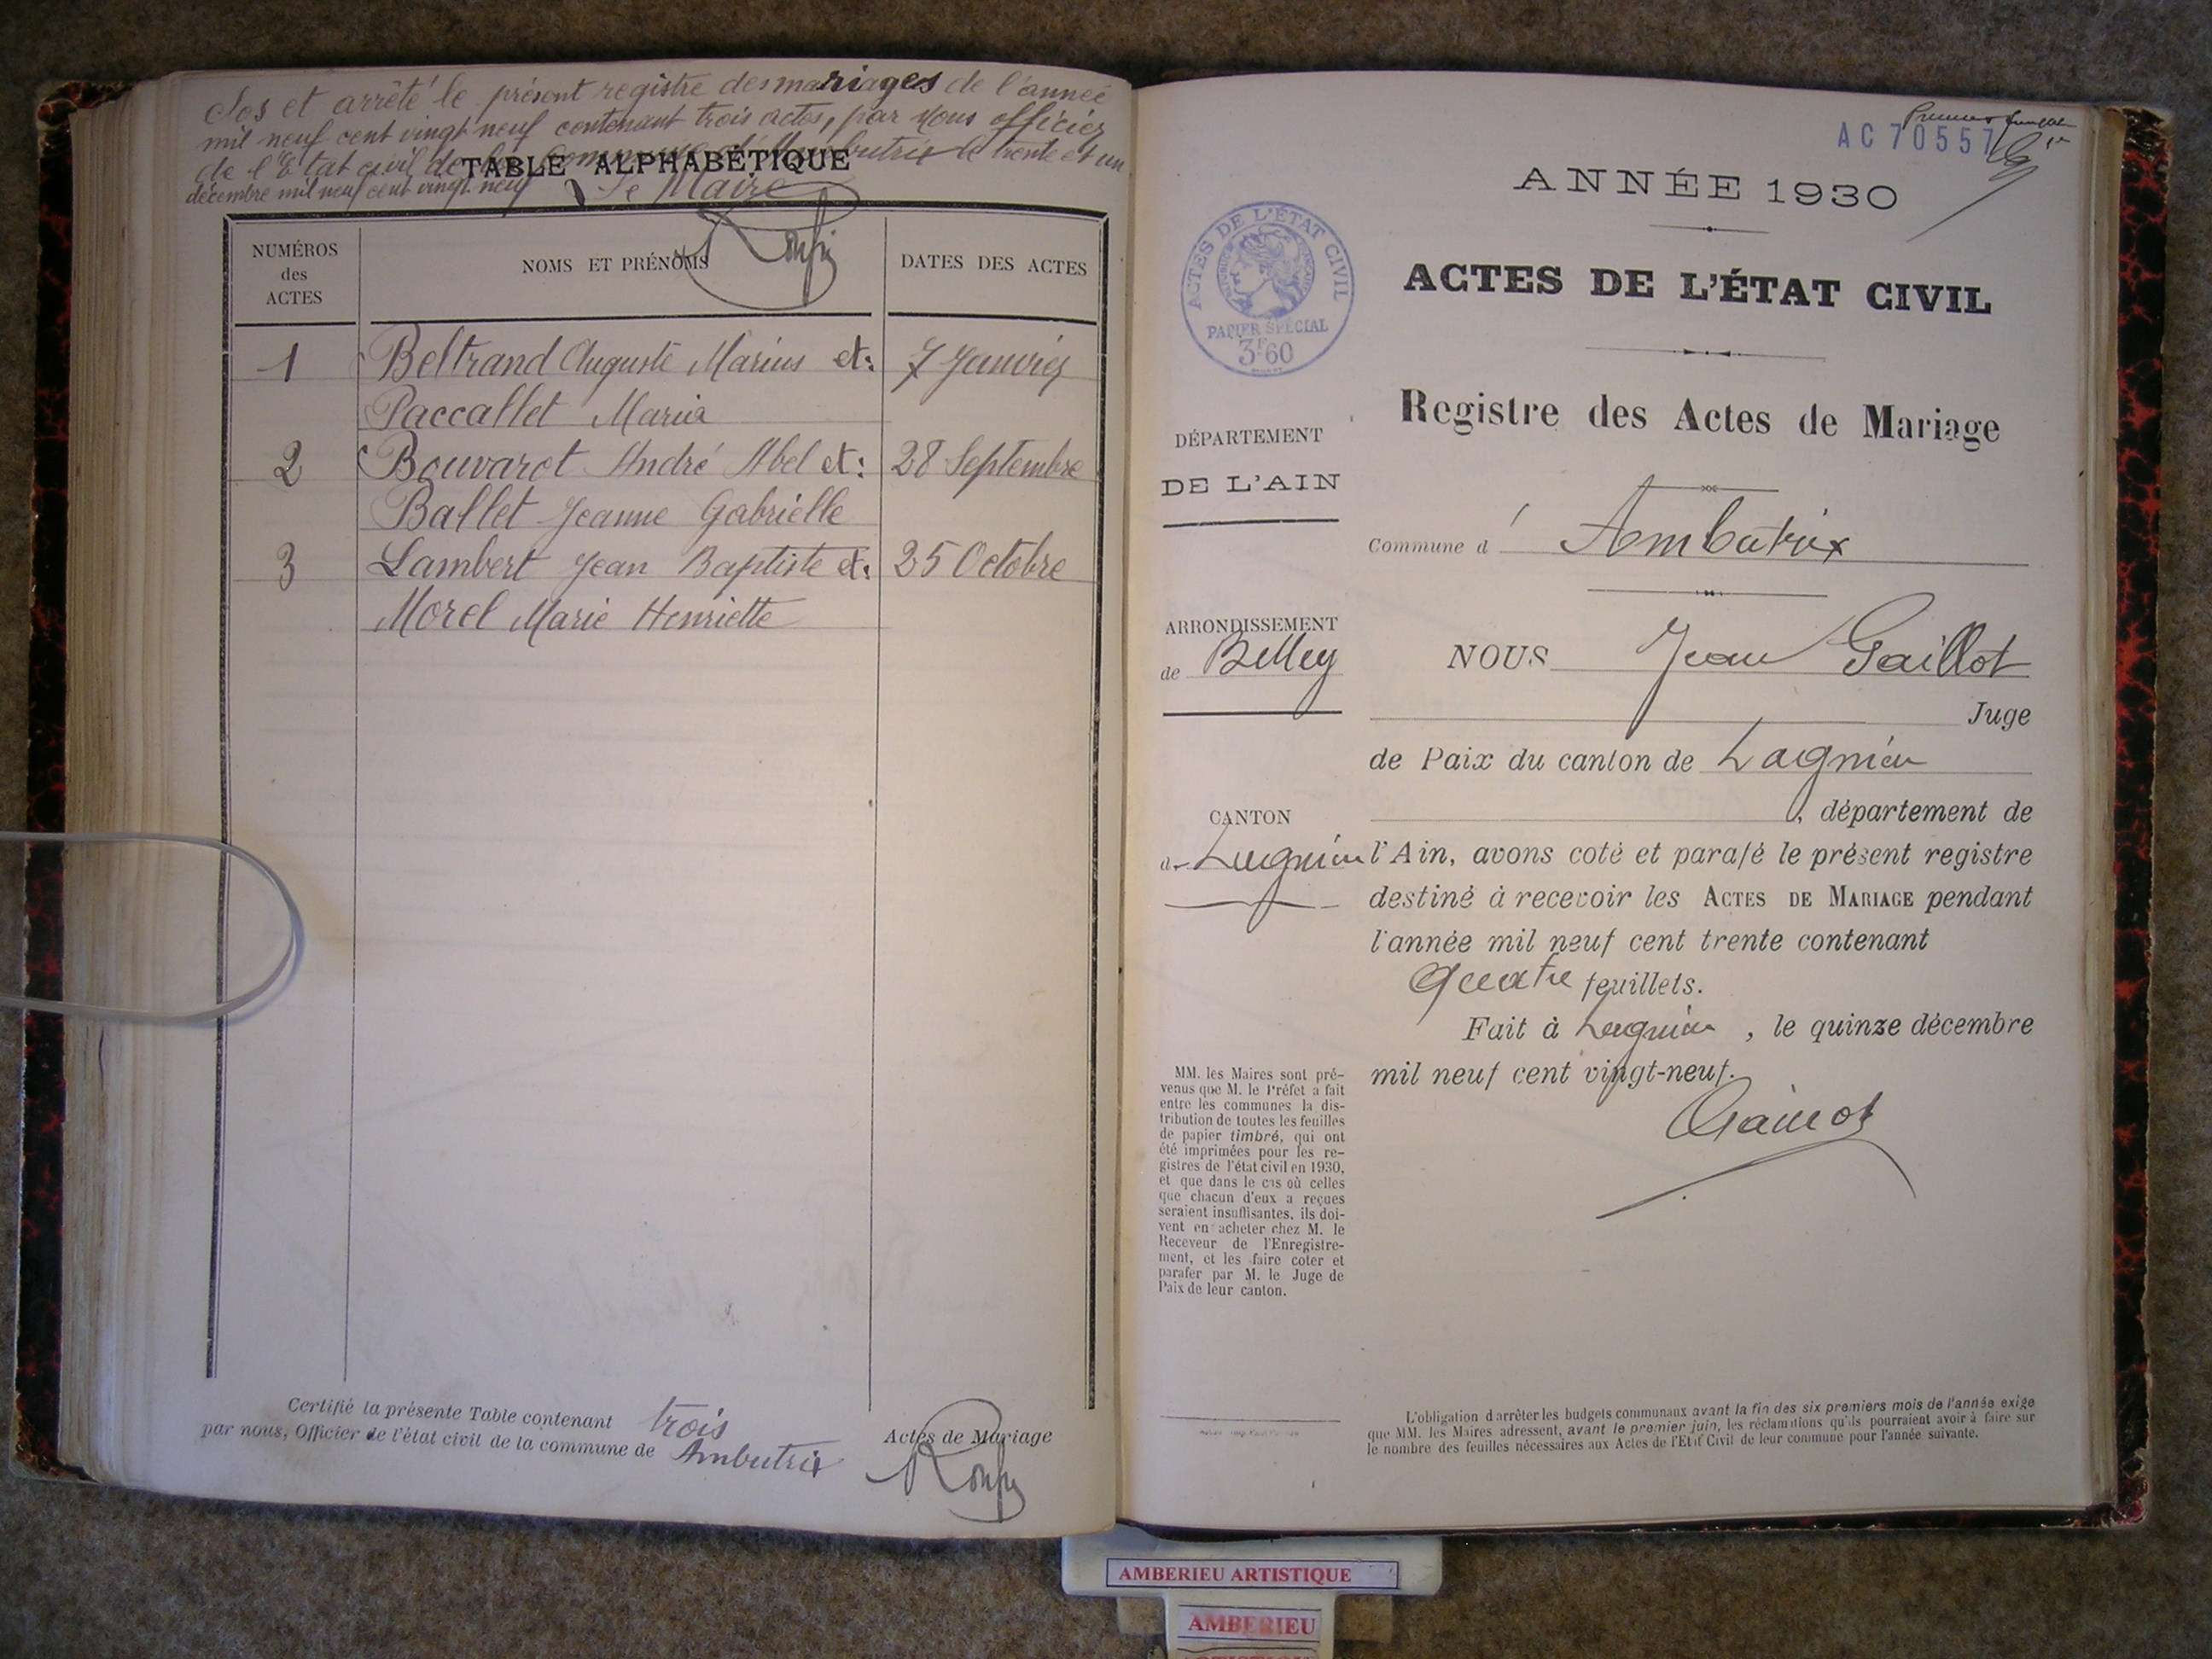 Clos et arrêté le présent registre des mariages de l'année
mil neuf cent vingt neuf contenant trois actes, par Nous officier
de l'Etat civil de la Commune d'Ambutrix le trente et un
décembre mil neuf cent vingt neuf Le Maire
TABLE ALPHABÉTIQUE
NUMÉROS
des
ACTES
NOMS ET PRÉNOMS
DATES DES ACTES
1 Beltrand Auguste Marius et: 7 Janvier
Paccallet Maria
2 Bouvarot André Abel et: 28 Septembre
Ballet Jeanne Gabrielle
3 Lambert Jean Baptiste et: 25 Octobre
Morel Marie Henriette
Certifié la présente Table contenant trois Actes de Mariage
par nous, Officier de l'état civil de la commune de Ambutrix
AC 70557
ANNÉE 1930
ACTES DE L'ÉTAT CIVIL
PAPIER SPÉCIAL
3F60
ACTES DE L'ÉTAT CIVIL
Registre des Actes de Mariage
DÉPARTEMENT
DE L'AIN
Commune d' Ambutrix
ARRONDISSEMENT
de Belley
CANTON
de Lagnieu
NOUS Jean Gaillot
Juge
de Paix du canton de Lagnieu
, département de
l'Ain, avons coté et parafé le présent registre
destiné à recevoir les ACTES DE MARIAGE pendant
l'année mil neuf cent trente contenant
quatre feuillets.
Fait à Lagnieu, le quinze décembre
mil neuf cent vingt-neuf.
MM. les Maires sont pré-
venus que M. le Préfet a fait
entre les communes la dis-
tribution de toutes les feuilles
de papier timbré, qui ont
été imprimées pour les re-
gistres de l'état civil en 1930,
et que dans le cas où celles
que chacun d'eux a reçues
seraient insuffisantes, ils doi-
vent en acheter chez M. le
Receveur de l'Enregistre-
ment, et les faire coter et
parafer par M. le Juge de
Paix de leur canton.
L'obligation d'arrêter les budgets communaux avant la fin des six premiers mois de l'année exige
que MM. les Maires adressent, avant le premier juin, les réclamations qu'ils pourraient avoir à faire sur
le nombre des feuilles nécessaires aux Actes de l'Etat Civil de leur commune pour l'année suivante.
AMBERIEU ARTISTIQUE
AMBERIEU